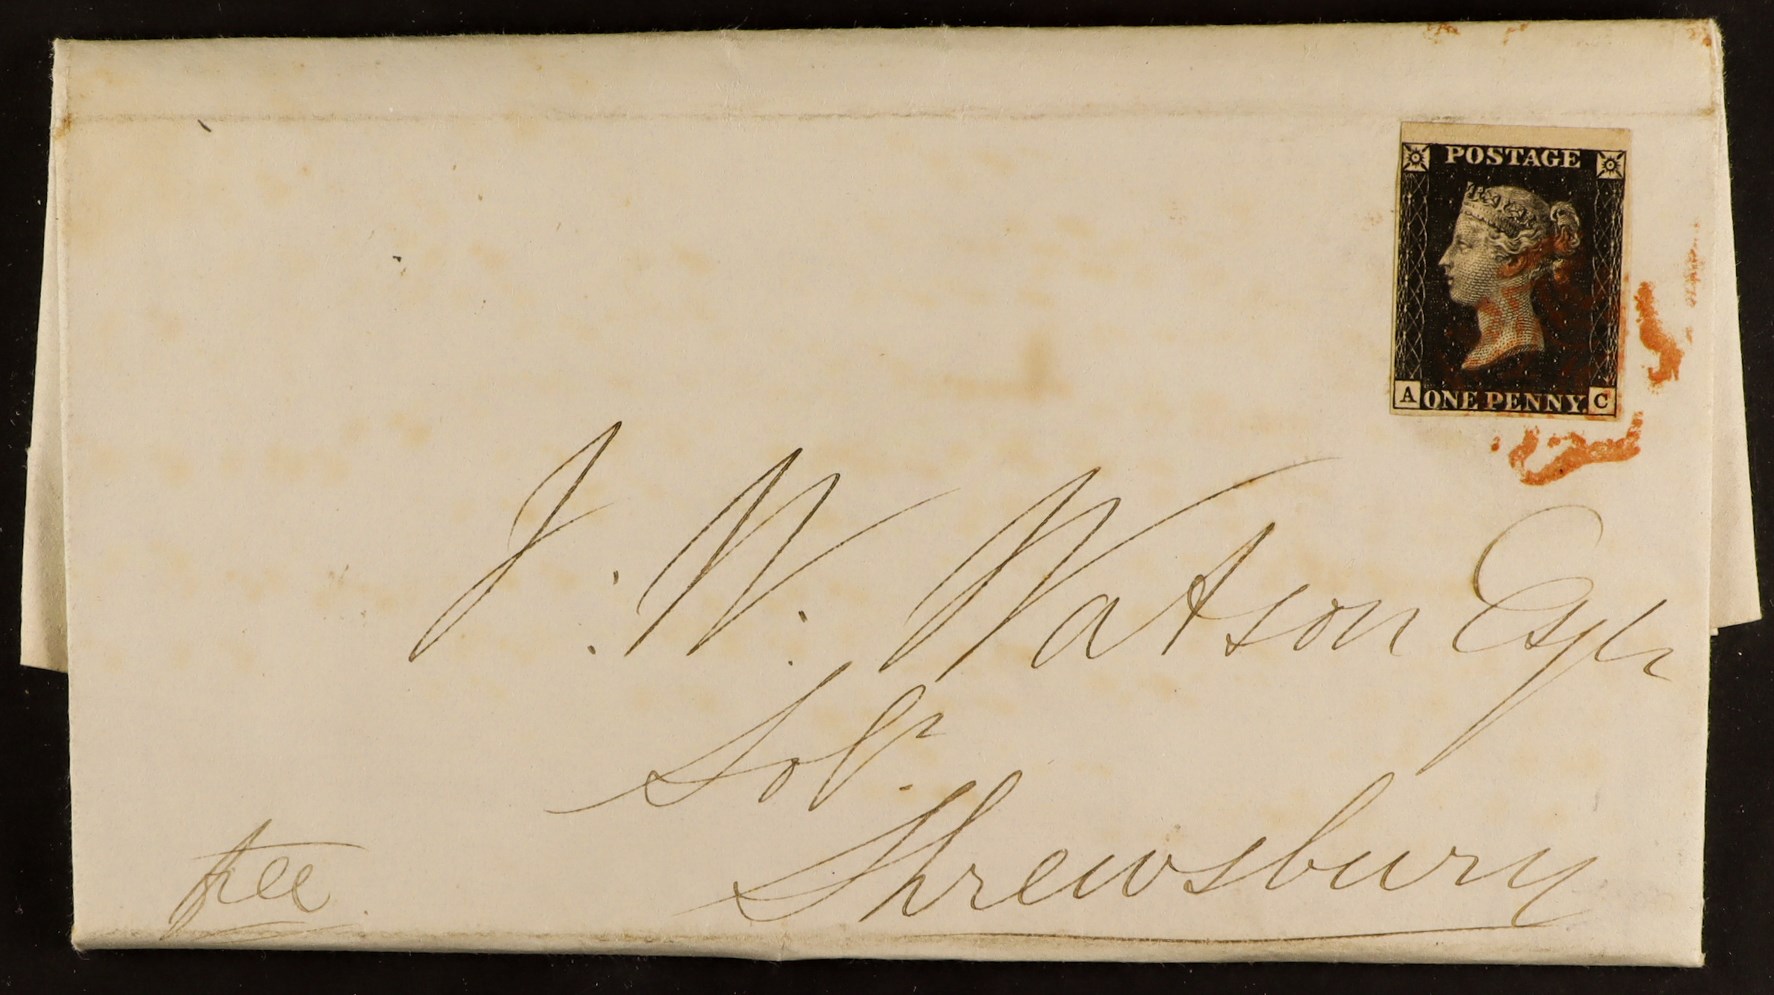 POSTAGE
A ONE PENNY. C
J. W. Watson Esqr
Solr.
Shrewsbury
free